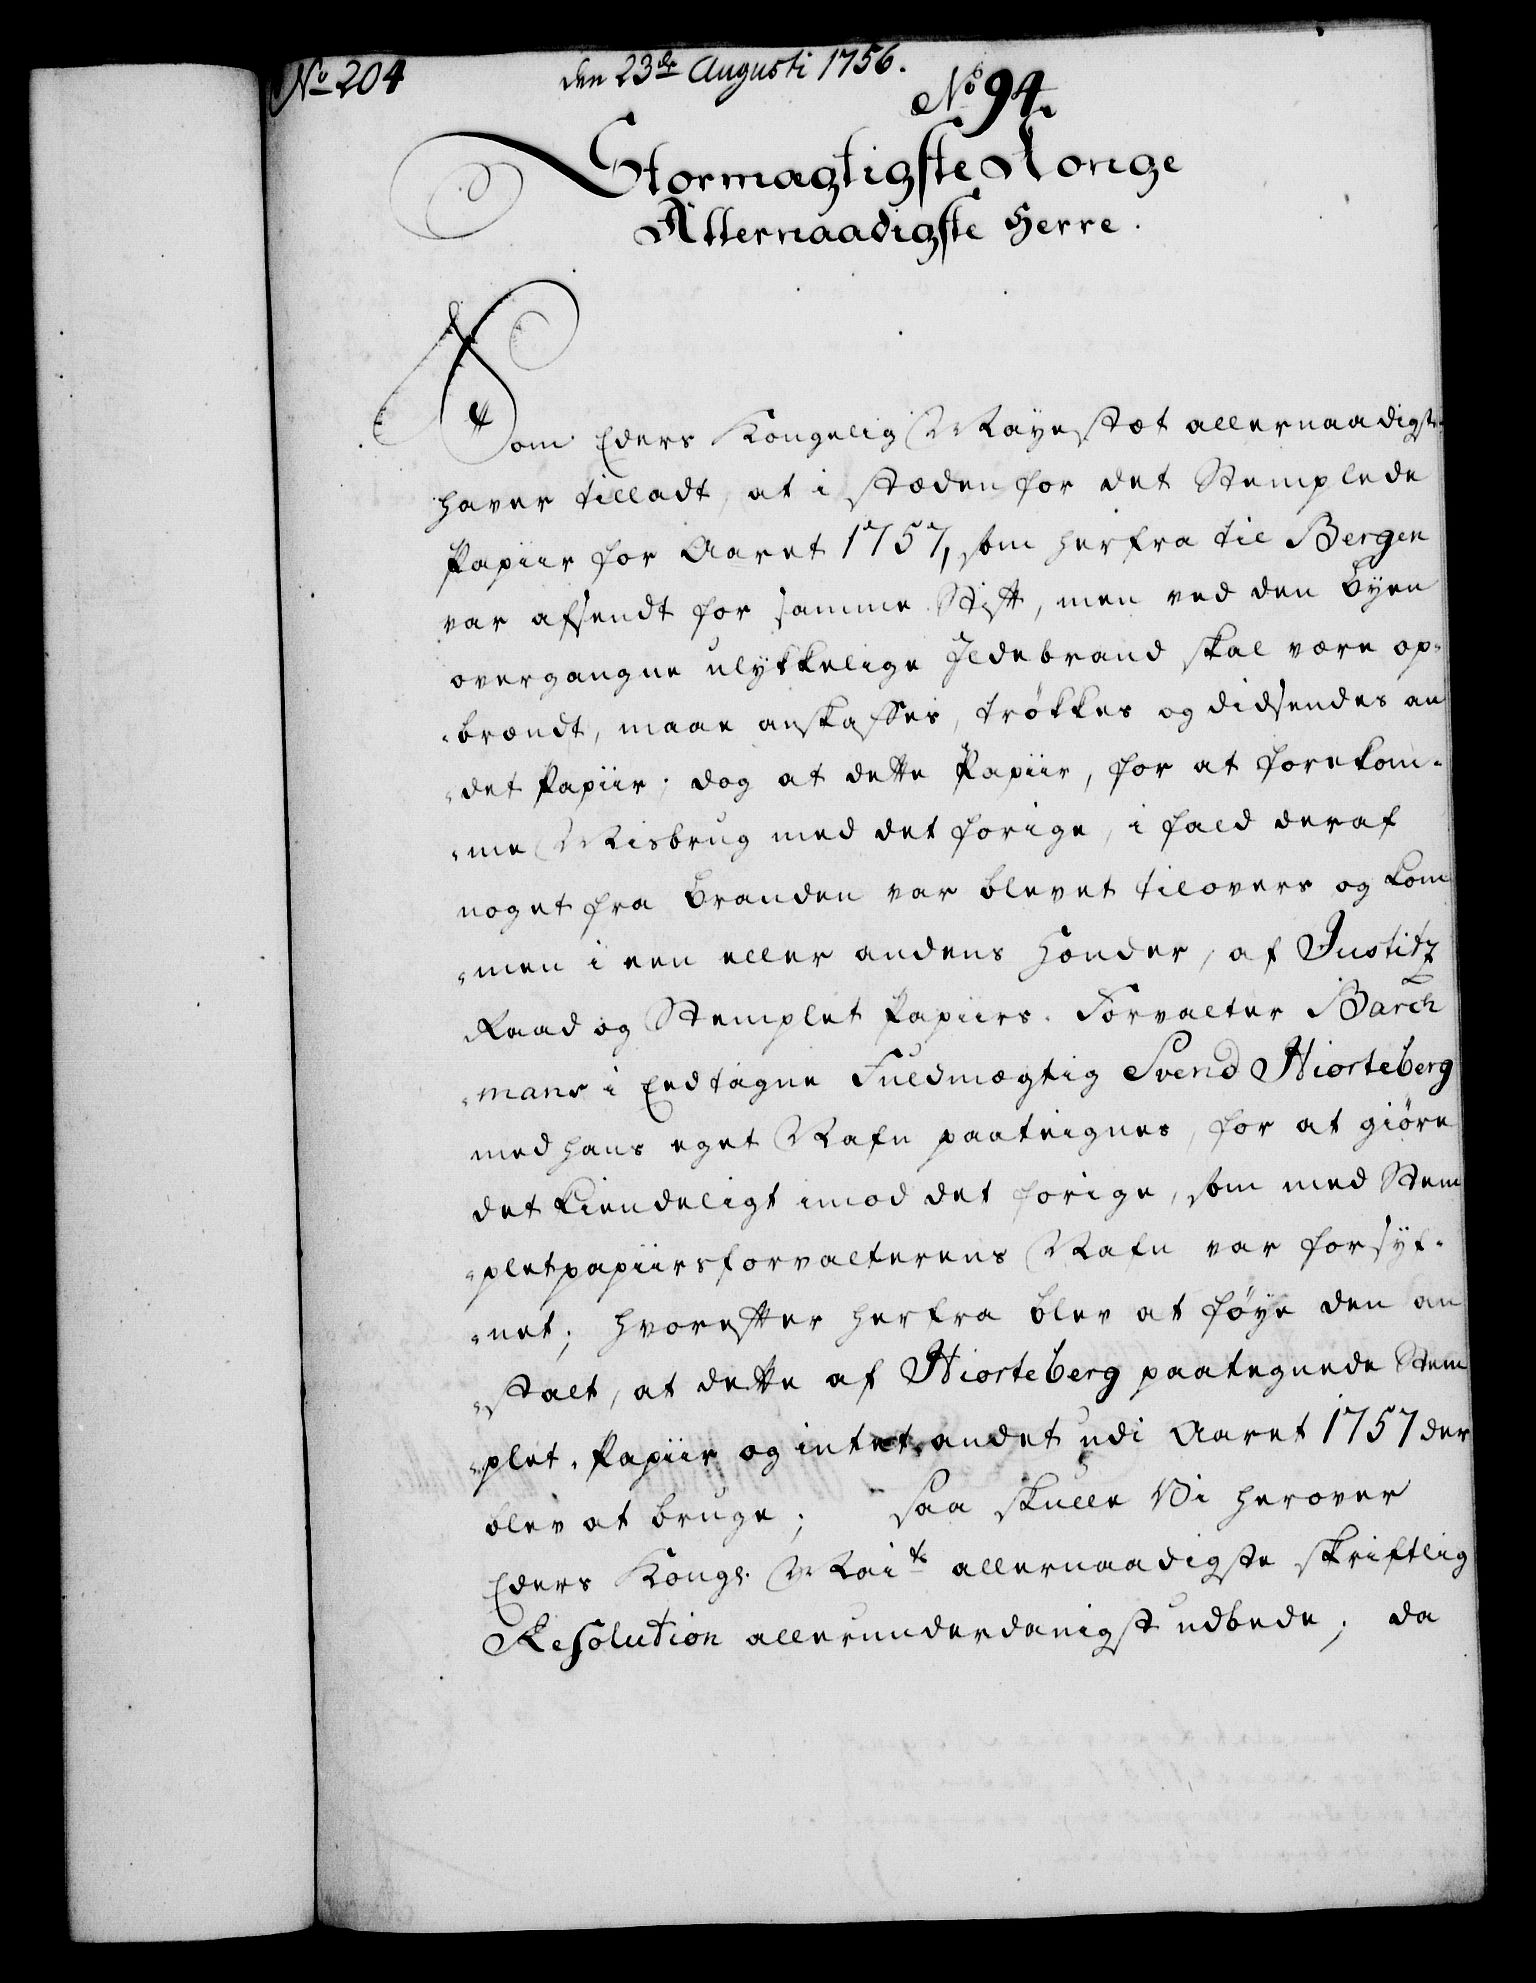 No 204
den 23de Augusti 1756.
No 94.
Stormagtigste Konge
Allernaadigste Herre.
Som Eders Kongelig Mayestæt allernaadigst
haver tilladt, at i stæden for det Stemplede
Papiir for Aaret 1757, som herfra til Bergen
var afsendt for samme Stift, men ved den Byen
overgangne ulykkelige Jldebrand skal være op-
-brændt, maae anskaffes, trøkkes og didsendes an
-det Papiir; dog at dette Papiir, for at forekom-
-me Misbrug med det forige, i fald deraf
noget fra Branden var blevet tilovers og kom
-men i een eller andens Hænder, af Justitz
Raad og Stemplet Papiirs-Forvalter Barch
-mans i Eedtagne Fuldmægtig Svend Hiorteberg
med hans eget Nafn paateignes, for at giøre
det kiendeligt imod det forige, som med Stem
-pletpapiirsforvalterens Nafn var forsÿf-
-net; hvorefter herfra blev at føye den an
-stalt, at dette af Hiorteberg paategnede Stem
-plet-Papiir og intet andet udi Aaret 1757 der
blev at bruge; saa skulle Vi herover
Eders Kongl. Maits allernaadigste skriftlig
Resolution allerunderdanigst udbede; da